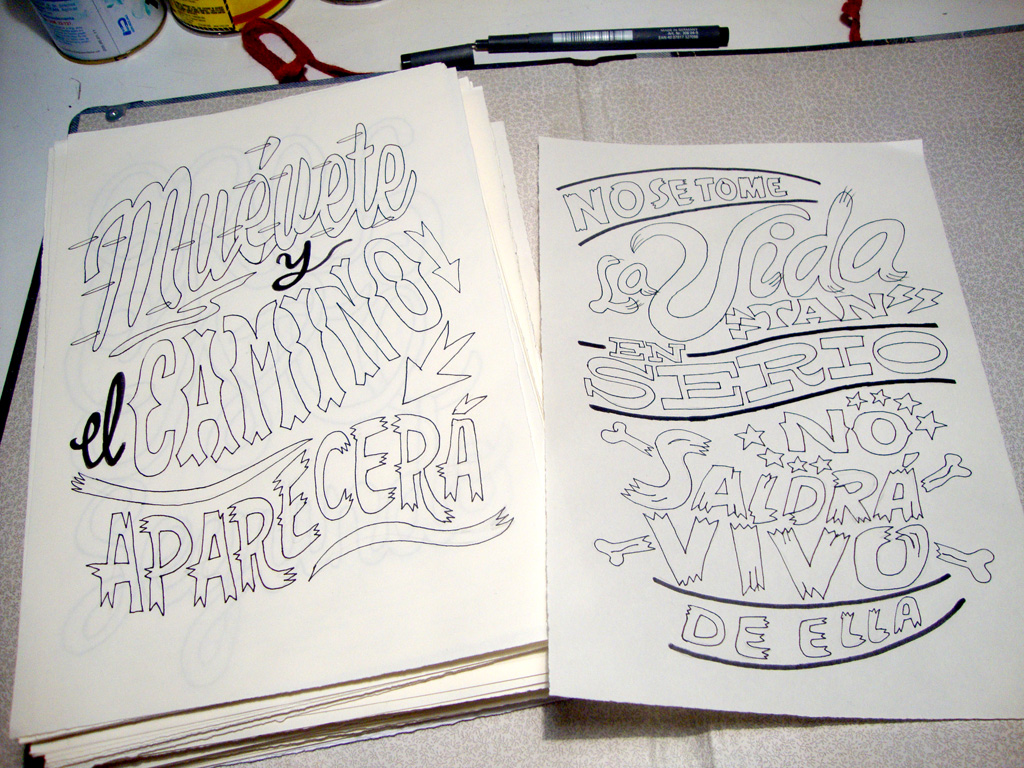 Muévete
y
el CAMINO
APARECERÁ
NO SE TOME
La Vida
TAN
EN
SERIO
NO
SALDRÁ
VIVO
DE ELLA